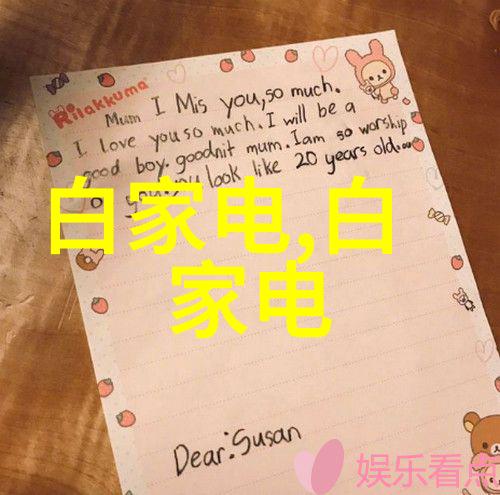 Rilakkuma
Mum I Mis you, so much.
I love you so much. I will be a
good boy. goodnit mum. Iam so worship
you. you look like 20 years old.
白家电,白
家电
Dear: Susan
娱乐看点